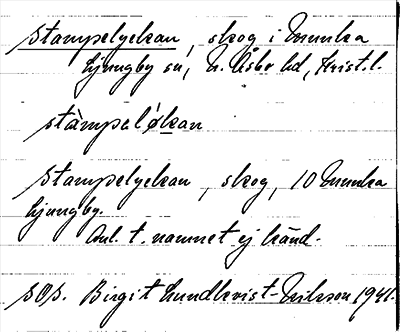 Stampelyckan, skog i Munka
Ljungby sn, N. Åsbo hd, Krist. l.
stàmpeløkan
Stampelyckan, skog, 10 Munka
Ljungby.
Anl. t. namnet ej känd.
SOS. Birgit Lundkvist-Eriksson 1941.